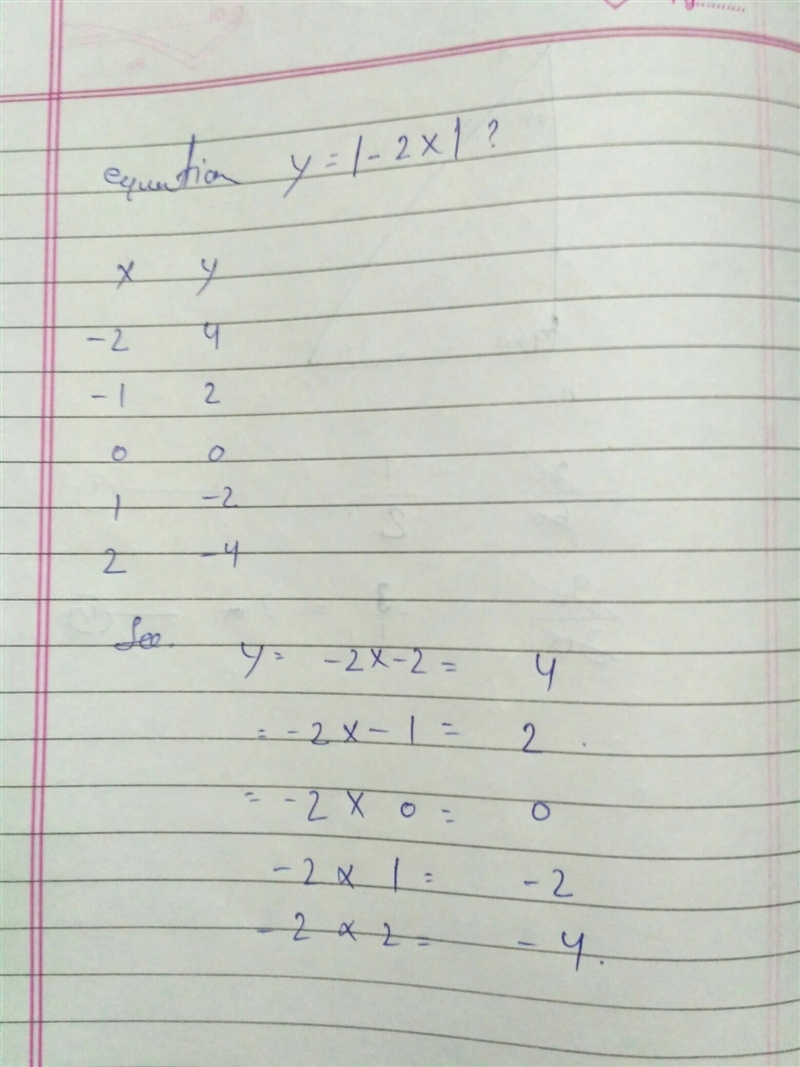 equation y = |-2x| ?
x y
-2 4
-1 2
0 0
1 -2
2 -4
y = -2 x -2 = 4
= -2 x -1 = 2 .
= -2 x 0 = 0
-2 x 1 = -2
-2 x 2 = -4.